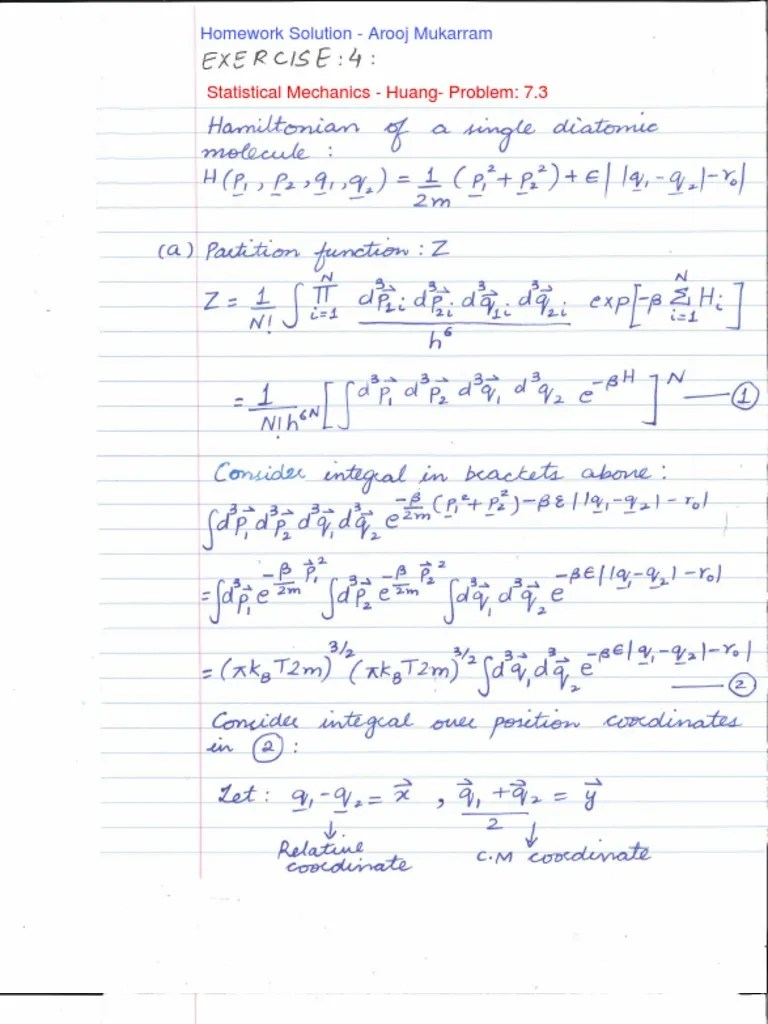 Homework Solution - Arooj Mukarram
EXERCISE:4:
Statistical Mechanics - Huang- Problem: 7.3
Hamiltonian of a single diatomic
molecule :
H(p₁, p₂, q₁, q₂) = 1/2m (p₁² + p₂²) + ϵ| |q₁ - q₂| - r₀|
(a) Partition function : Z
Z = 1/N! ∫ ∏_{i=1}^{N} d³p⃗₁ᵢ d³p⃗₂ᵢ d³q⃗₁ᵢ d³q⃗₂ᵢ / h⁶ exp[-β Σ_{i=1}^{N} Hᵢ]
= 1/N!h^{6N} [∫d³p⃗₁ d³p⃗₂ d³q⃗₁ d³q₂ e^{-βH}]^N —— ①
Consider integral in brackets above :
∫d³p⃗₁ d³p⃗₂ d³q⃗₁ d³q⃗₂ e^{-β/2m (p₁² + p₂²) - βε| |q₁ - q₂| - r₀|}
= ∫d³p⃗₁ e^{-β/2m p⃗₁²} ∫d³p⃗₂ e^{-β/2m p⃗₂²} ∫d³q⃗₁ d³q⃗₂ e^{-βϵ| |q₁ - q₂| - r₀|}
= (πk_BT2m)^{3/2} (πk_BT2m)^{3/2} ∫d³q⃗₁ d³q⃗₂ e^{-βϵ|q₁ - q₂| - r₀|}
—— ②
Consider integral over position coordinates
in ② :
Let : q₁ - q₂ = x⃗ , q⃗₁ + q⃗₂ / 2 = y⃗
↓ ↓
Relative C.M coordinate
coordinate